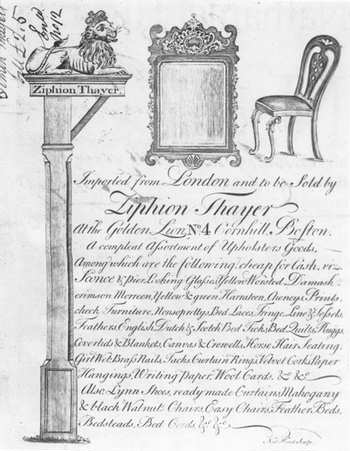 Ziphion Thayer.
Imported from London and to be Sold by
Ziphion Thayer
At the Golden Lion, No. 4 Cornhill, Boston.
A compleat Assortment of Upholsters Goods,
Among which are the following, cheap for Cash, viz
Sconce & pier Looking Glasses, Yellow Worsted Damask
crimson Morreen, Yellow & green Harrateen, Cheneys, Prints,
check Furniture, Bed Laces, Fringe, Line & Tossels
Feathers, English, Dutch & Scotch Bed Ticks, Bed Quilts, Ruggs,
Coverlids & Blankets, Canvas & Crewells, Horse Hair Seating,
Girt Web, Brass Nails, Tacks, Curtain Rings, Velvet Corks, Paper
Hangings, Writing paper, Wool Cards. &c. &c.
Also Lynn Shoes, ready made Curtains, Mahogany
& black Walnut Chairs, Easy Chairs, Feather Beds,
Bedsteads, Bed Cords &c. &c.